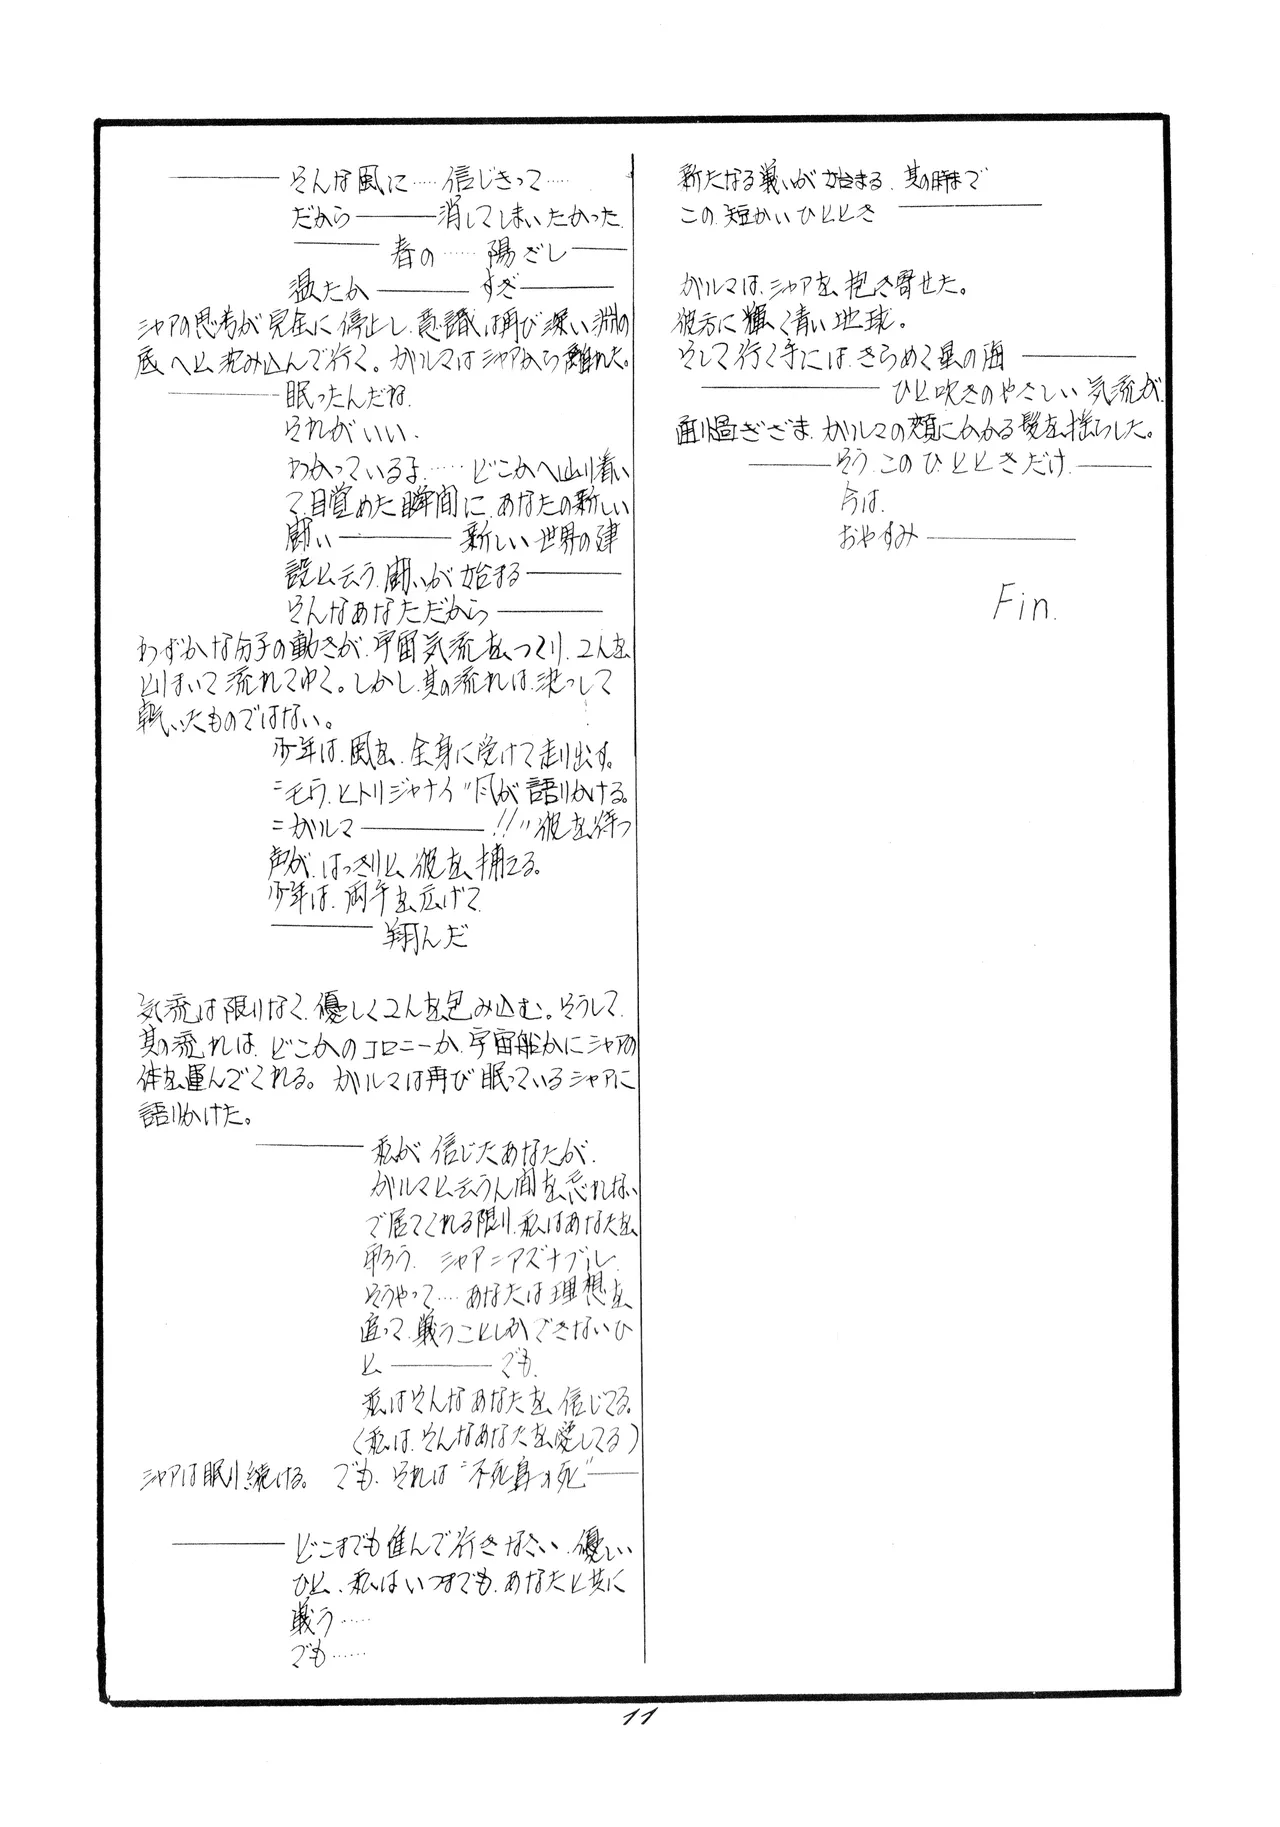 ――― そんな風に…… 信じきって……
だから ――― 消してしまいたかった.
――― 春の …… 陽ざし ―――
温たか ――― すぎ ―――
シャアの思考が完全に停止し、意識は再び深い淵の
底へと沈み込んで行く。ガルマはシャアから離れた。
――― 眠ったんだね.
それがいい.
わかっているよ…… どこかへ辿り着い
て、目覚めた瞬間に、あなたの新しい
闘い ――― 新しい世界の建
設と云う、闘いが始まる ―――
そんなあなただから ―――
わずかな分子の動きが、宇宙気流をつくり、2人を
とりまいて流れてゆく。しかし、其の流れは、決っして
乾いたものではない。
少年は、風を、全身に受けて走り出す。
〝モウ、ヒトリジャナイ〟風が語りかける。
〝ガルマ ――― !!〟彼を待つ
声が、はっきりと、彼を、捕える。
少年は、両手を広げて、
――― 翔んだ
気流は限りなく、優しく2人を包み込む。そうして、
其の流れは、どこかのコロニーか、宇宙船かにシャアの
体を運んでくれる。ガルマは再び眠っているシャアに
語りかけた。
――― 私が信じたあなたが、
ガルマと云う人間を忘れない
で居てくれる限り、私はあなたを
守ろう. シャア=アズナブル.
そうやって…… あなたは理想を
追って、戦うことしかできないひ
と ――― でも.
私はそんなあなたを、信じてる。
(私は、そんなあなたを、愛してる)
シャアは眠り続ける。でも、それは〝不死鳥の死〟―――
――― どこまでも進んで行きなさい、優しい
ひと、私はいつまでも、あなたと共に
戦う……
でも……
新たなる戦いが始まる、其の時まで
この、短かいひととき ―――
ガルマは、シャアを、抱き寄せた。
彼方に輝く青い地球。
そして行く手には、きらめく星の海 ―――
――― ひと吹きのやさしい気流が、
通り過ぎざま、ガルマの頬にかかる髪を、揺らした。
――― そう、このひとときだけ、―――
今は、
おやすみ ―――
Fin.
11